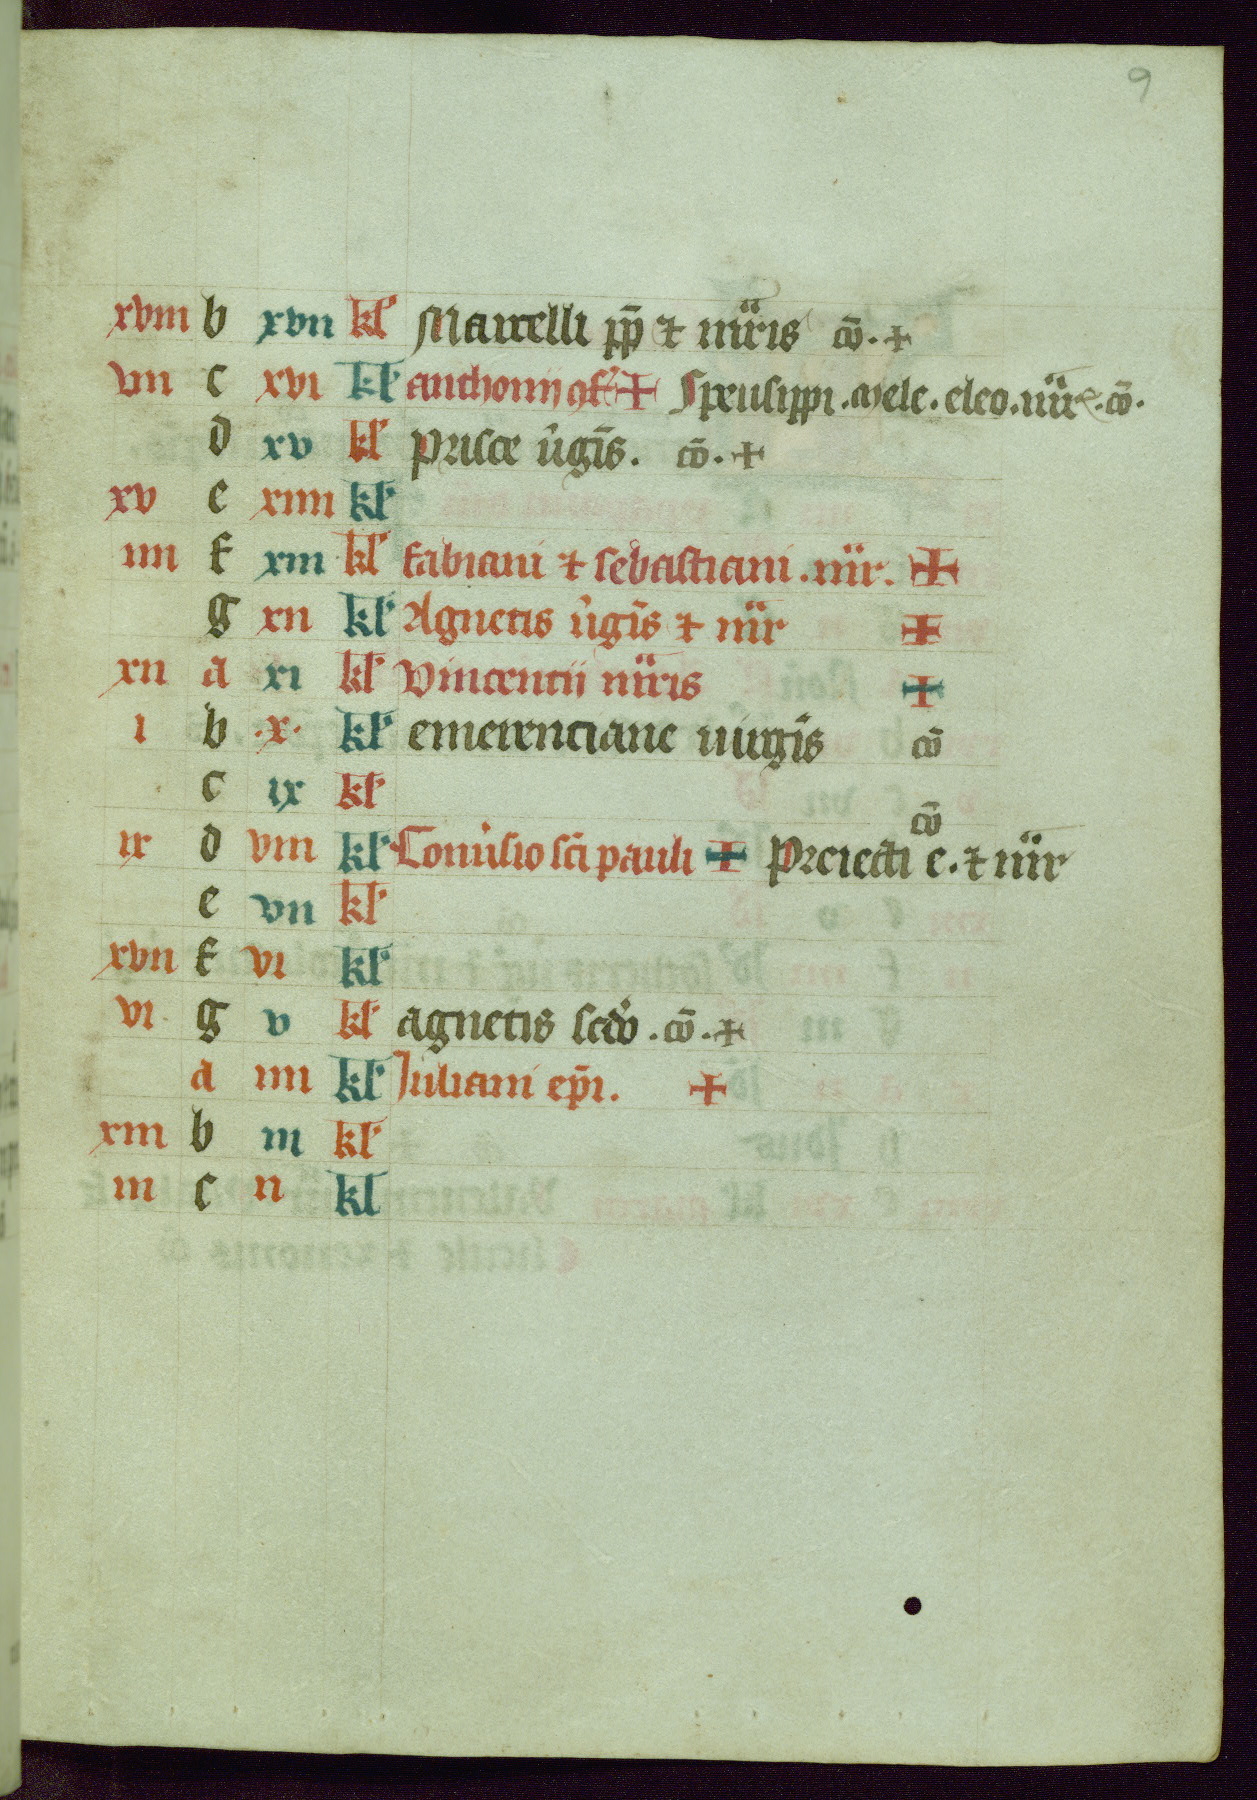 9
xviii b xvii kl' Marcelli pp̄ et mr̄is cō. +
vii c xvi kl' anthonii ɔf' + Speusippi. Mele. eleo. mr̄. cō.
d xv kl' Prisce v̄gīs. cō. +
xv e xiiii kl'
iiii f xiii kl' fabiani et sebastiani. mr̄. +
g xii kl' Agnetis v̄gīs et mr̄ +
xii a xi kl' Vincentii mr̄is +
i b .x. kl' emerenciane virgīs cō
c ix kl'
ix d viii kl' Conu'sio sc̄i pauli + Preiecti e. et mr̄ cō
e vii kl'
xvii f vi kl'
vi g v kl' agnetis scdo. cō. +
a iiii kl' Juliani ep̄i. +
xiii b iii kl'
iii c ii kl